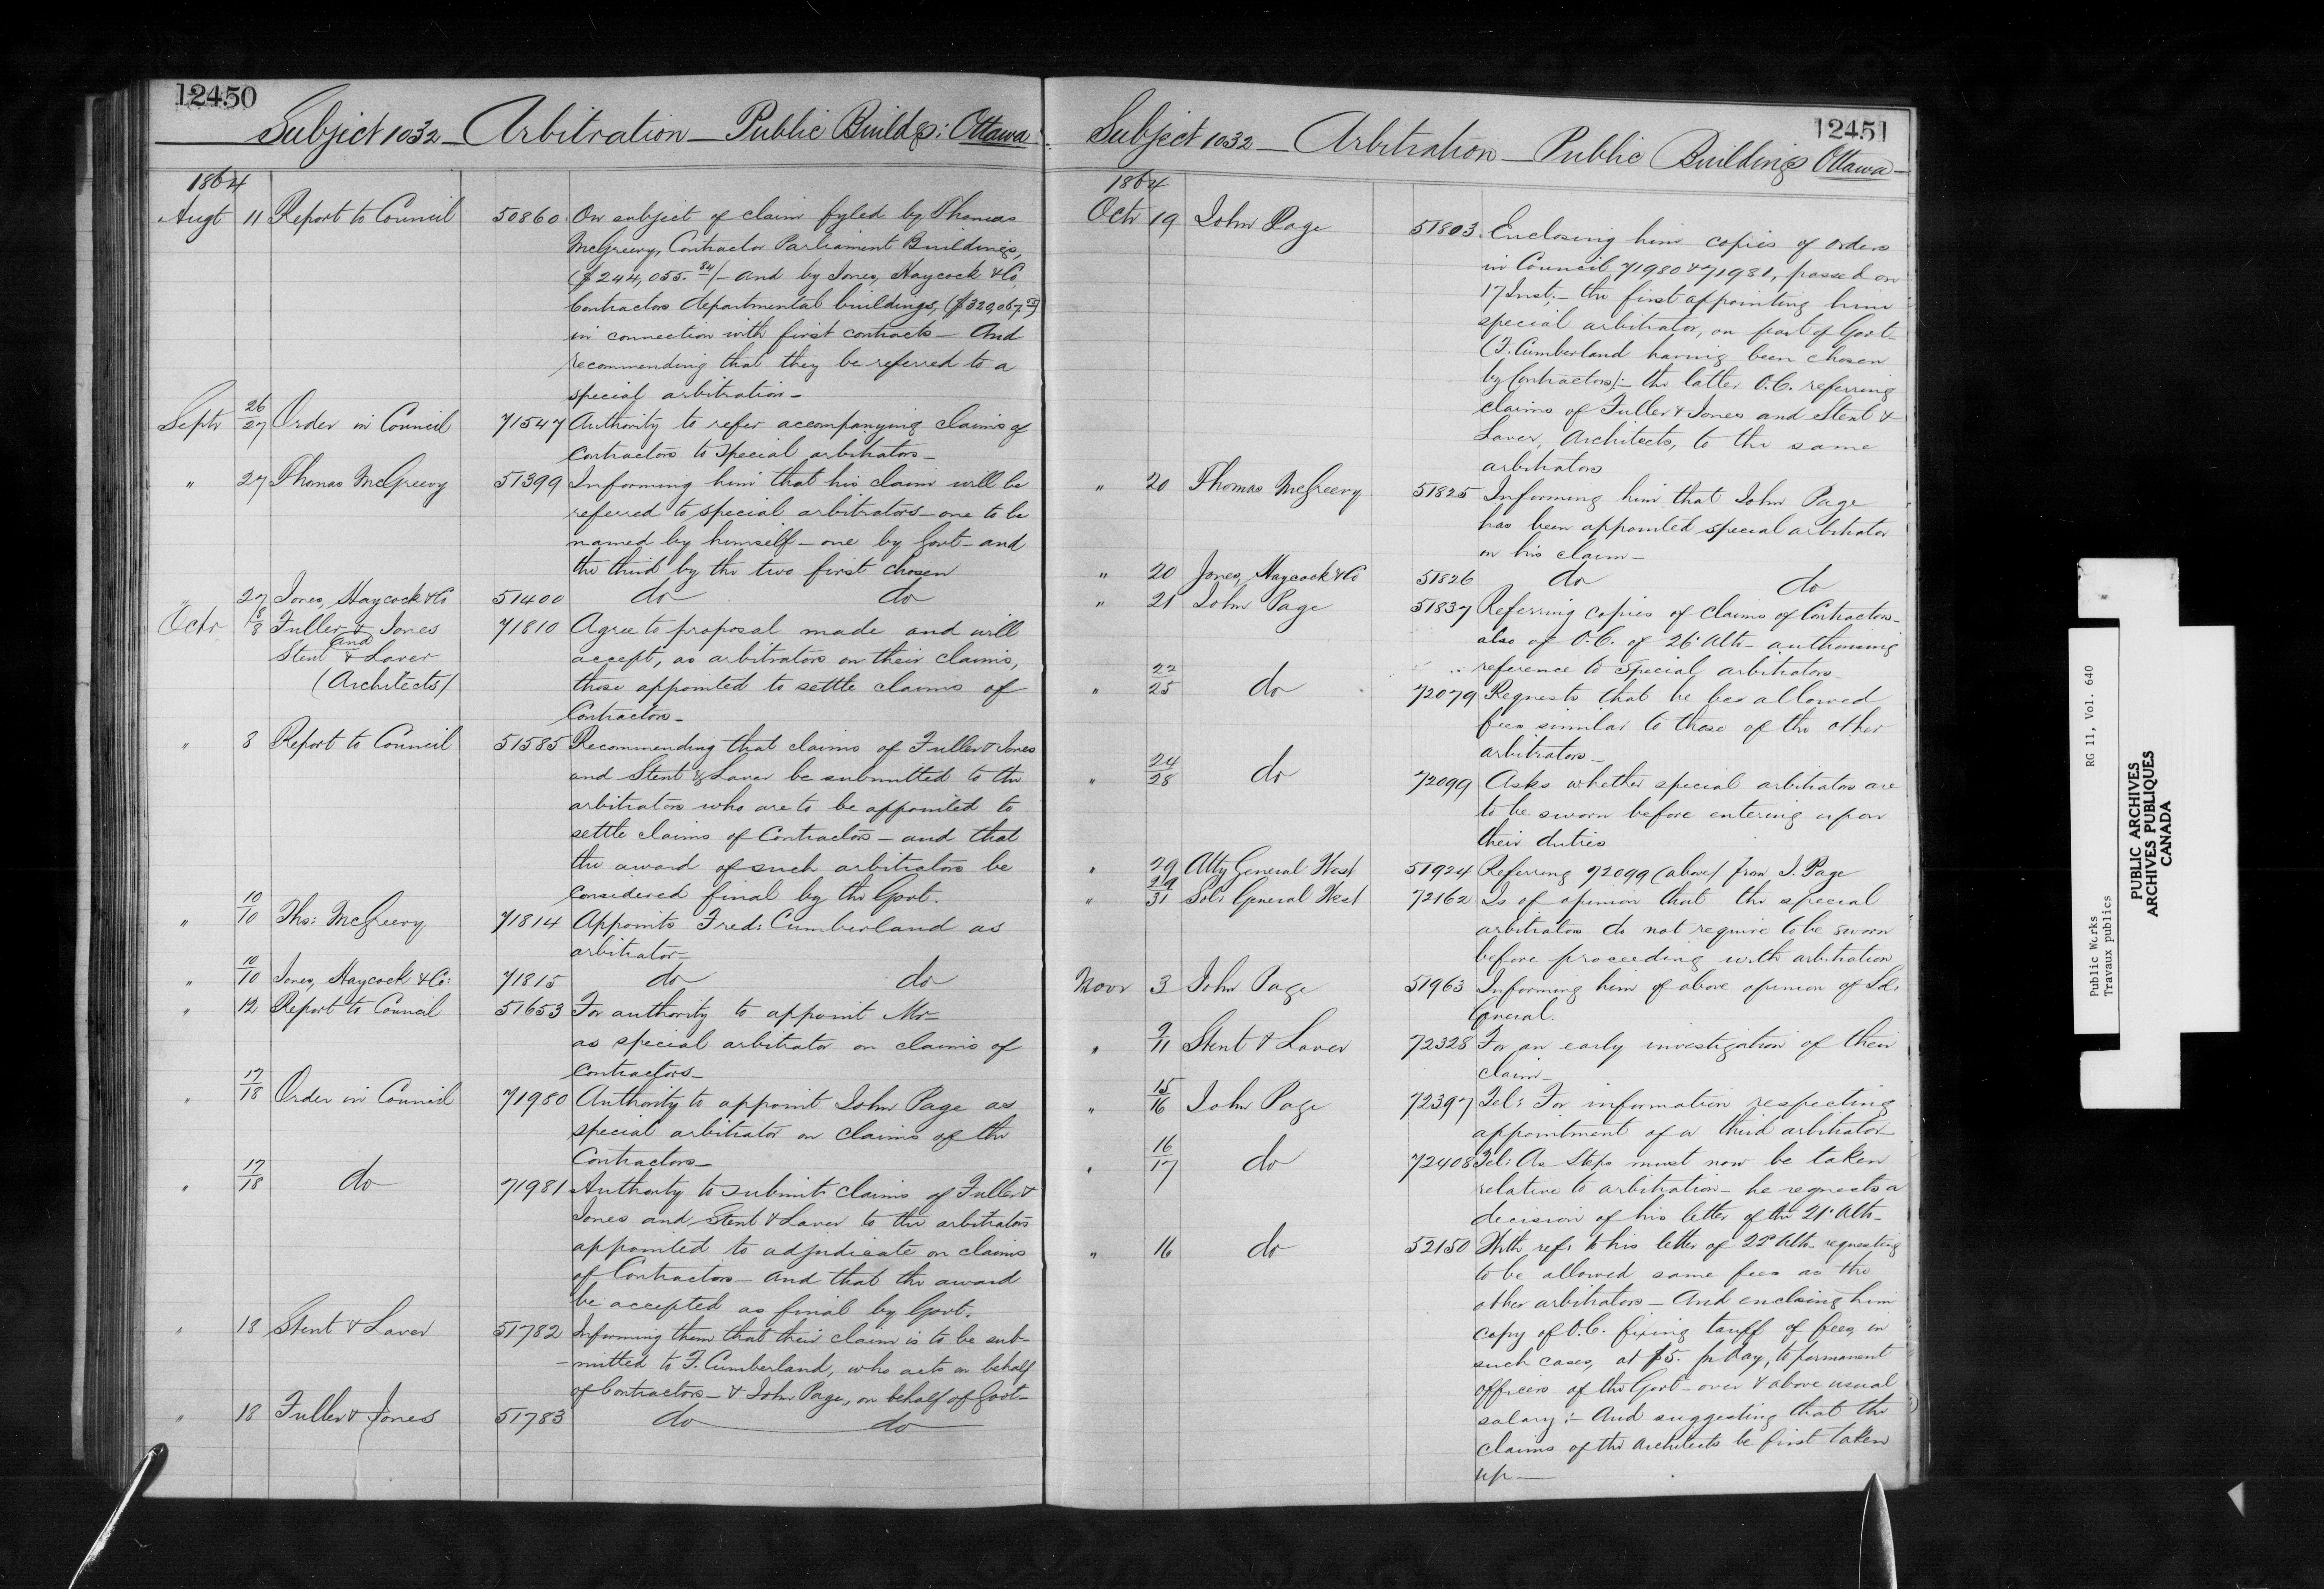 12450
Subject 1032 - Arbitration - Public Build^gs: Ottawa
1864
Augt 11 Report to Council 50860 On subject of claim fyled by Thomas
McGreevy, Contractor Parliament Buildings,
($244,055.84) - and by Jones, Haycock & Co
Contractors departmental buildings,
in connection with first contracts - And
recommending that they be referred to a
special arbitration -
Septr 26/27 Order in Council 71547 Authority to refer accompanying claims of
Contractors to special arbitrators -
" 27 Thomas McGreevy 51399 Informing him that his claim will be
referred to special arbitrators - one to be
named by himself - one by Govt - and
the third by the two first chosen
" 27 Jones, Haycock & Co 51400 do do
Octr 8/8 Fuller & Jones 71810 Agree to proposal made and will
and
Stent & Laver accept, as arbitrators on their claims,
(Architects) those appointed to settle claims of
Contractors -
" 8 Report to Council 51585 Recommending that claims of Fuller & Jones
and Stent & Laver be submitted to the
arbitrators who are to be appointed to
settle claims of Contractors - and that
the award of such arbitrators be
considered final by the Govt.
" 10/10 Tho: McGreevy 71814 Appoints Fred: Cumberland as
arbitrator -
" 10/10 Jones, Haycock & Co: 71815 do do
" 12 Report to Council 51653 For authority to appoint Mr -
as special arbitrator on claims of
Contractors -
" 17/18 Order in Council 71980 Authority to appoint John Page as
special arbitrator on claims of the
Contractors -
" 17/18 do 71981 Authority to submit claims of Fuller &
Jones and Stent & Laver to the arbitrators
appointed to adjudicate on claims
of Contractors - and that the award
be accepted as final by Govt.
" 18 Stent & Laver 51782 Informing them that their claim is to be sub-
-mitted to F. Cumberland, who acts on behalf
of Contractors - & John Page, on behalf of Govt -
" 18 Fuller & Jones 51783 do do
12451
Subject 1032 - Arbitration - Public Buildings Ottawa -
1864
Octr 19 John Page 51803 Enclosing him copies of orders
in Council, 71980 & 71981, passed on
17 Inst; - the first appointing him
special arbitrator, on part of Govt -
(F. Cumberland having been chosen
by Contractors): - the latter O.C. referring
claims of Fuller & Jones and Stent &
Laver, Architects, to the same
arbitrators
" 20 Thomas McGreevy 51825 Informing him that John Page
has been appointed special arbitrator
on his claim -
" 20 Jones, Haycock & Co 51826 do do
" 21 John Page 51837 Referring copies of claims of Contractors -
also of O.C. of 26' Ulto - authorising
reference to special arbitrators -
" 22/25 do 72079 Requests that he be allowed
fees similar to those of the other
arbitrators -
" 24/28 do 72099 Asks whether special arbitrators are
to be sworn before entering upon
their duties
" 29 Atty General West 51924 Referring 72099 (above) from J. Page
" 29/31 Sol: General West 72162 Is of opinion that the special
arbitrators do not require to be sworn
before proceeding with arbitration
Novr 3 John Page 51963 Informing him of above opinion of Sol:
General.
" 9/11 Stent & Laver 72328 For an early investigation of their
claim -
" 15/16 John Page 72397 Tel: For information respecting
appointment of a third arbitrator -
" 16/17 do 72408 Tel: As steps must now be taken
relative to arbitration - he requests a
decision of his letter of the 21' Ulto -
" 16 do 52150 With refce to his letter of 22d Ulto - requesting
to be allowed same fees as the
other arbitrators - And enclosing him
copy of O.C. fixing tariff of fees, in
such cases, at $5. pr day, to permanent
officers of the Govt - over & above usual
salary: - And suggesting that the
claims of the Architects be first taken
up -
Public Works RG 11, Vol. 640
Travaux publics
PUBLIC ARCHIVES
ARCHIVES PUBLIQUES
CANADA